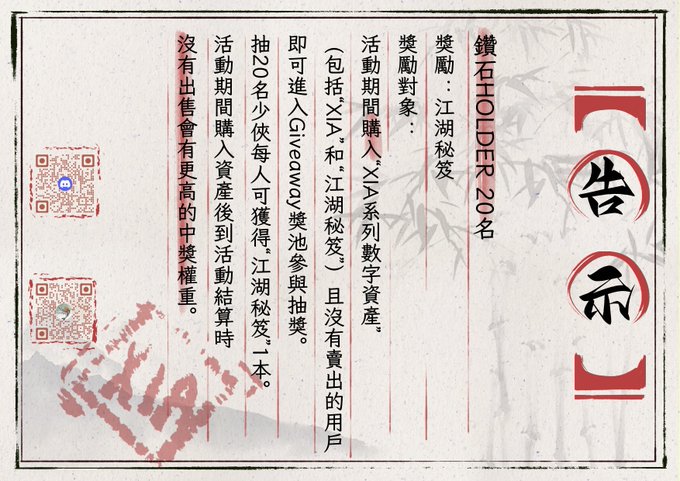 【告示】
鑽石HOLDER 20名
獎勵：江湖秘笈
獎勵對象：
活動期間購入“XIA系列數字資產”
(包括“XIA”和“江湖秘笈”) 且沒有賣出的用戶
即可進入Giveaway獎池參與抽獎。
抽20名少俠每人可獲得“江湖秘笈”1本。
活動期間購入資產後到活動結算時
沒有出售會有更高的中獎權重。